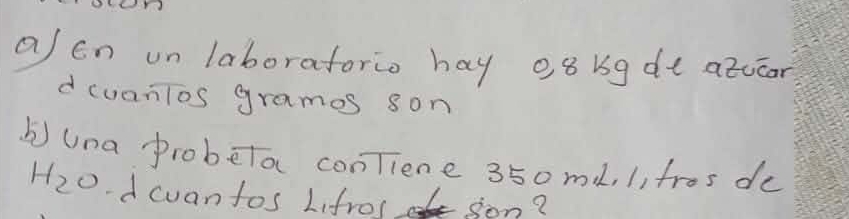 a) En un laboratorio hay 0,8 Kg de azúcar
¿cuántos gramos son
b) una probeta contiene 350 mililitros de
H2O. ¿cuantos Litros son?